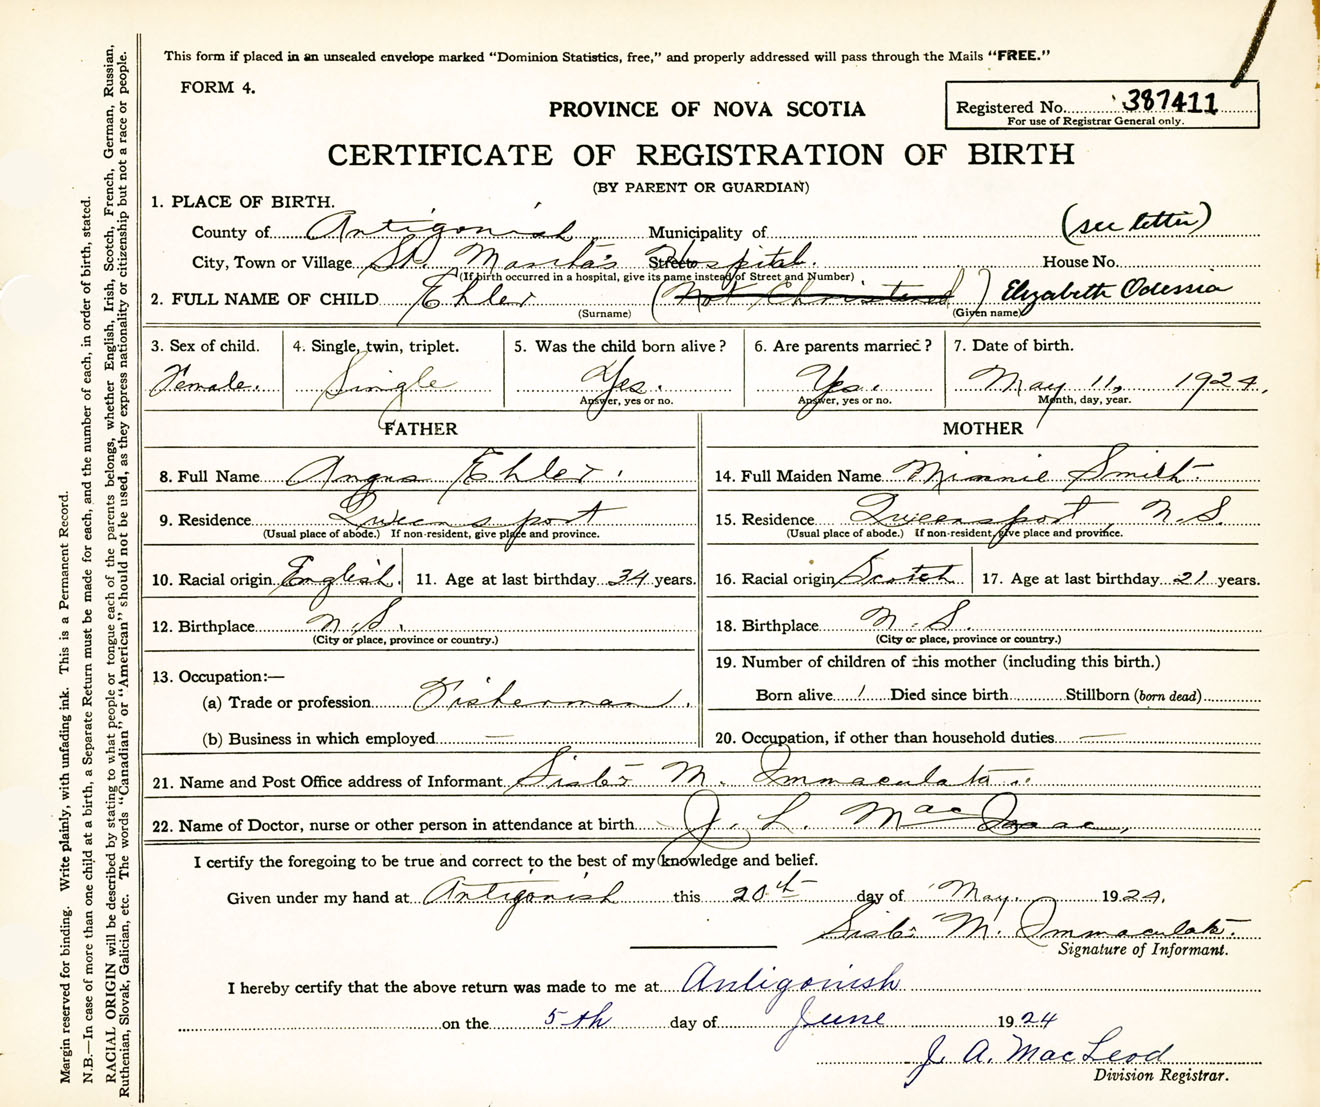 This form if placed in an unsealed envelope marked "Dominion Statistics, free," and properly addressed will pass through the Mails "FREE."
FORM 4.
Registered No. 387411
For use of Registrar General only.
PROVINCE OF NOVA SCOTIA
CERTIFICATE OF REGISTRATION OF BIRTH
(BY PARENT OR GUARDIAN)
1. PLACE OF BIRTH.
County of Antigonish Municipality of (see letter)
City, Town or Village St. Martha's Hospital. Street House No.
(If birth occurred in a hospital, give its name instead of Street and Number)
2. FULL NAME OF CHILD Ehler (Not Christened) Elizabeth Odessia
(Surname) (Given name)
3. Sex of child. 4. Single, twin, triplet. 5. Was the child born alive? 6. Are parents married? 7. Date of birth.
Female. Single Yes. Yes. May 11, 1924.
Answer, yes or no. Answer, yes or no. Month, day, year.
FATHER MOTHER
8. Full Name Angus Ehler. 14. Full Maiden Name Minnie Smith
9. Residence Queensport 15. Residence Queensport, N.S.
(Usual place of abode.) If non-resident, give place and province. (Usual place of abode.) If non-resident, give place and province.
10. Racial origin English. 11. Age at last birthday 34 years. 16. Racial origin Scotch 17. Age at last birthday 21 years.
12. Birthplace N.S. 18. Birthplace N.S.
(City or place, province or country.) (City or place, province or country.)
13. Occupation:— 19. Number of children of this mother (including this birth.)
(a) Trade or profession Fisherman. Born alive 1 Died since birth Stillborn (born dead)
(b) Business in which employed — 20. Occupation, if other than household duties —
21. Name and Post Office address of Informant Sister M. Immaculata
22. Name of Doctor, nurse or other person in attendance at birth J. L. MacIsaac,
I certify the foregoing to be true and correct to the best of my knowledge and belief.
Given under my hand at Antigonish this 20th day of May. 1924.
Sister M. Immaculata.
Signature of Informant.
I hereby certify that the above return was made to me at Antigonish
on the 5th day of June 1924
J. A. MacLeod
Division Registrar.
Margin reserved for binding. Write plainly, with unfading ink. This is a Permanent Record.
N.B.—In case of more than one child at a birth, a Separate Return must be made for each, and the number of each, in order of birth, stated.
RACIAL ORIGIN will be described by stating to what people or tongue each of the parents belongs, whether English, Irish, Scotch, French, German, Russian,
Ruthenian, Slovak, Galician, etc. The words "Canadian" or "American" should not be used, as they express nationality or citizenship but not a race or people.